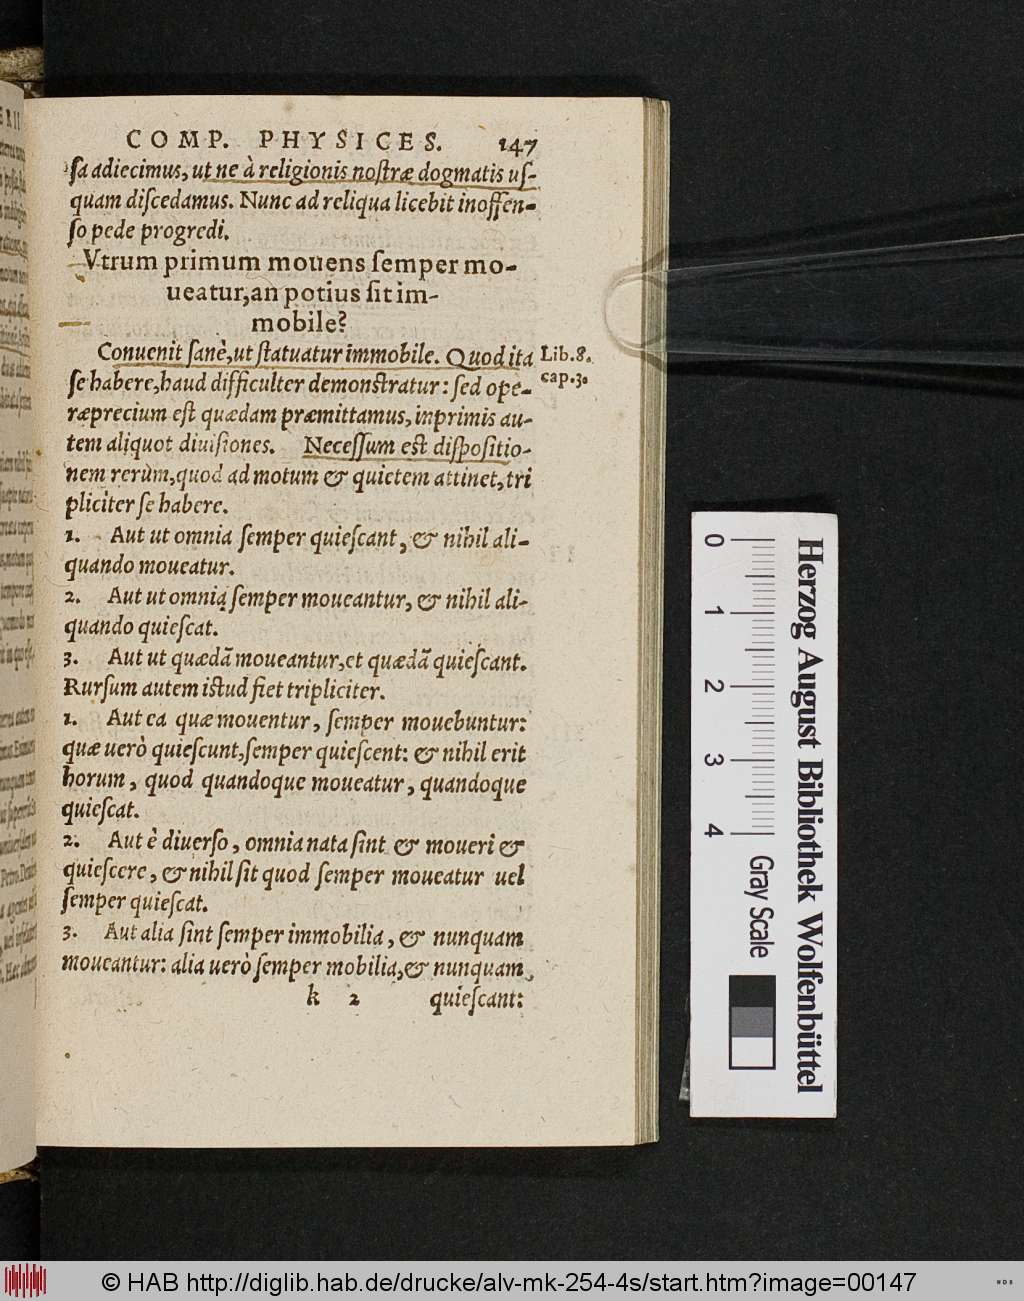 COMP. PHYSICES. 147
ſa adiecimus, ut ne à religionis noſtræ dogmatis uſ-
quam diſcedamus. Nunc ad reliqua licebit inoffen-
ſo pede progredi.
Vtrum primum mouens ſemper mo-
ueatur, an potius ſit im-
mobile?
Conuenit ſanè, ut ſtatuatur immobile. Quod ita
Lib. 8.
cap. 3.
ſe habere, haud difficulter demonſtratur: ſed ope-
ræprecium eſt quædam præmittamus, inprimis au-
tem aliquot diuiſiones. Neceſſum eſt diſpoſitio-
nem rerùm, quod ad motum & quietem attinet, tri
pliciter ſe habere.
1. Aut ut omnia ſemper quieſcant, & nihil ali-
quando moueatur.
2. Aut ut omnia ſemper moueantur, & nihil ali-
quando quieſcat.
3. Aut ut quædã moueantur, et quædã quieſcant.
Rurſum autem iſtud fiet tripliciter.
1. Aut ea quæ mouentur, ſemper mouebuntur:
quæ uerò quieſcunt, ſemper quieſcent: & nihil erit
horum, quod quandoque moueatur, quandoque
quieſcat.
2. Aut è diuerſo, omnia nata ſint & moueri &
quieſcere, & nihil ſit quod ſemper moueatur uel
ſemper quieſcat.
3. Aut alia ſint ſemper immobilia, & nunquam
moueantur: alia uerò ſemper mobilia, & nunquam
k 2 quieſcant:
0 1 2 3 4
Gray Scale
Herzog August Bibliothek Wolfenbüttel
© HAB http://diglib.hab.de/drucke/alv-mk-254-4s/start.htm?image=00147